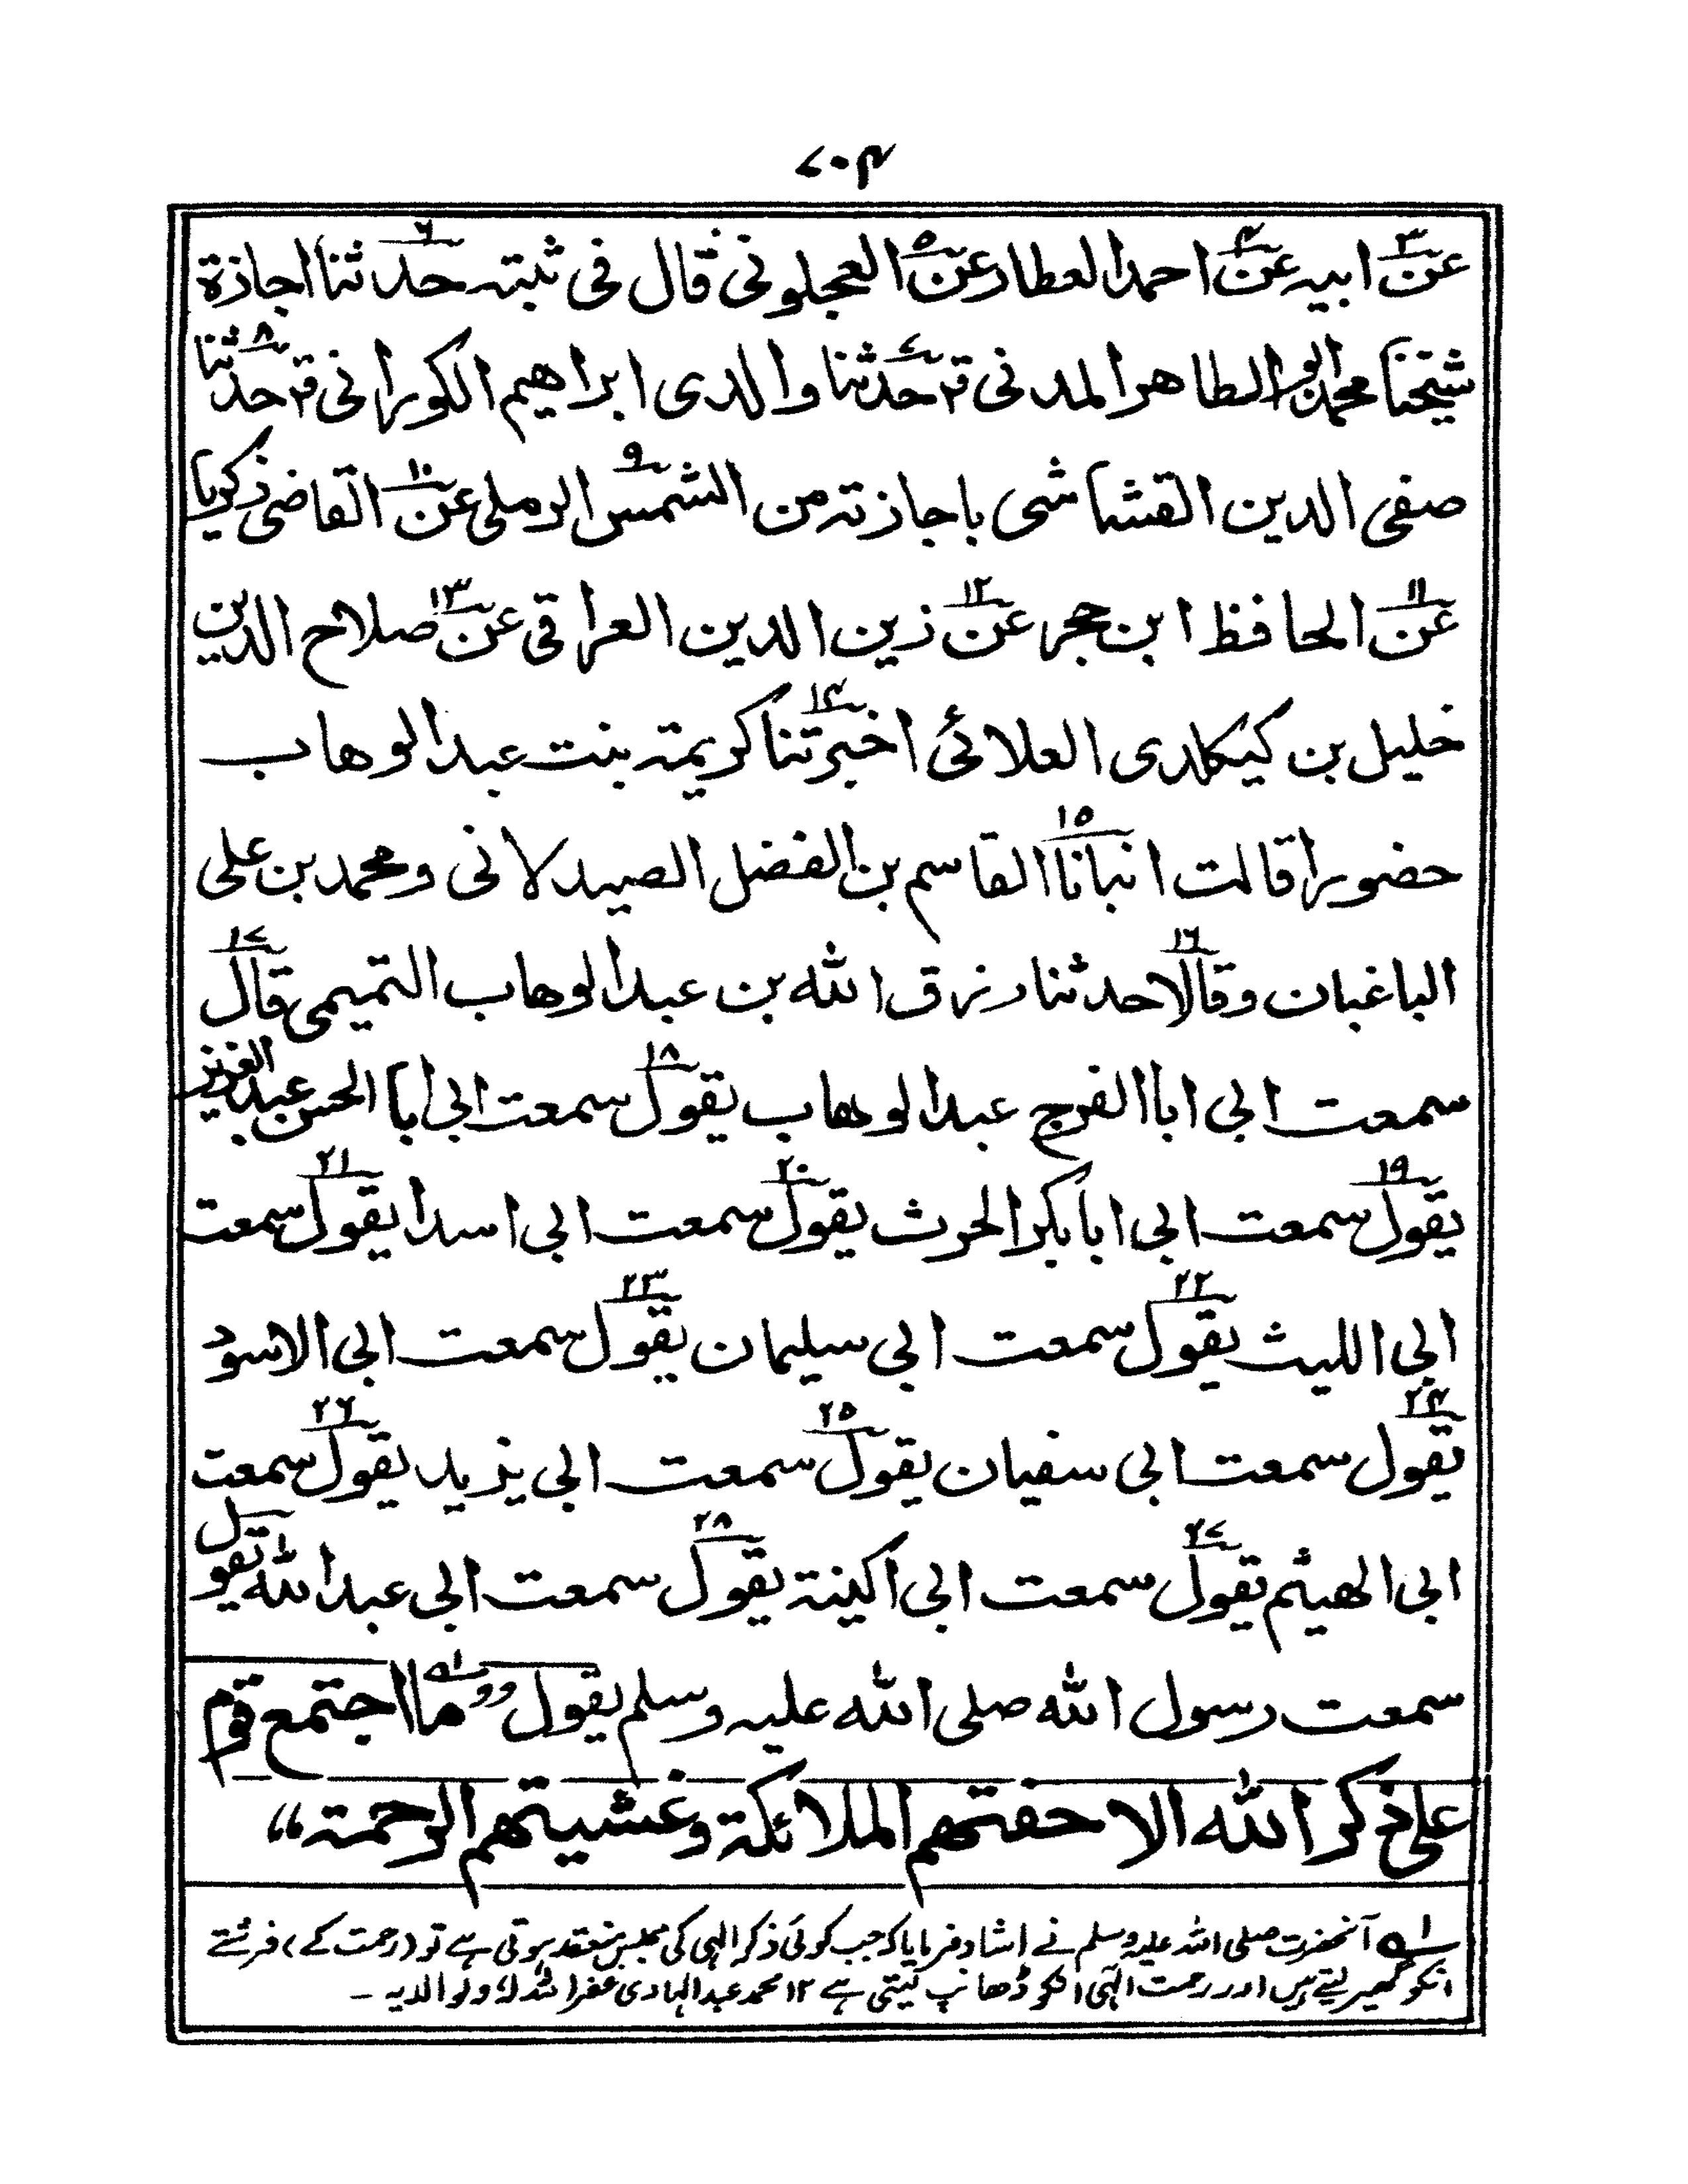 ۷۰۴
عن۳ ابیه عن۴ احمد العطار عن۵ العجلونی قال فی ثبته حدثنا۶ اجازة
شیخنا محمد ابو الطاهر المدنی قر حدثنا۷ والدی ابراهیم الکورانی قر حدثنا۸
صفی الدین القشاشی باجازته من الشمس۹ الرملی عن۱۰ القاضی ذکریا
عن۱۱ الحافظ ابن حجر عن۱۲ زین الدین العراقی عن۱۳ صلاح الدین
خلیل بن کیکلدی العلائی اخبرتنا۱۴ کریمة بنت عبدالوهاب
حضورا قالت انبانا۱۵ القاسم بن الفضل الصیدلانی ومحمد بن علی
الباغبان وقالا حدثنا۱۶ رزق الله بن عبدالوهاب التمیمی قال۱۷
سمعت ابی ابا الفرج عبدالوهاب یقول۱۸ سمعت ابی ابا الحسن عبدالعزیز
یقول۱۹ سمعت ابی ابابکر الحرث یقول۲۰ سمعت ابی اسدا یقول۲۱ سمعت
ابی اللیث یقول۲۲ سمعت ابی سلیمان یقول۲۳ سمعت ابی الاسود
یقول۲۴ سمعت ابی سفیان یقول۲۵ سمعت ابی یزید یقول۲۶ سمعت
ابی الهیثم یقول۲۷ سمعت ابی اکینة یقول۲۸ سمعت ابی عبدالله یقول
سمعت رسول الله صلی الله علیه وسلم یقول ”ما۱ اجتمع قوم
علی ذکر الله الا حفتهم الملائکة وغشیتهم الرحمة“
۱ه آنحضرت صلی اللہ علیہ وسلم نے ارشاد فرمایا کہ جب کوئی ذکر الٰہی کی مجلس منعقد ہوتی ہے تو (رحمت کے) فرشتے
انکو گھیر لیتے ہیں اور رحمت الٰہی انکو ڈھانپ لیتی ہے ۱۲ محمد عبدالہادی غفراللہ لہ ولوالدیہ ۔